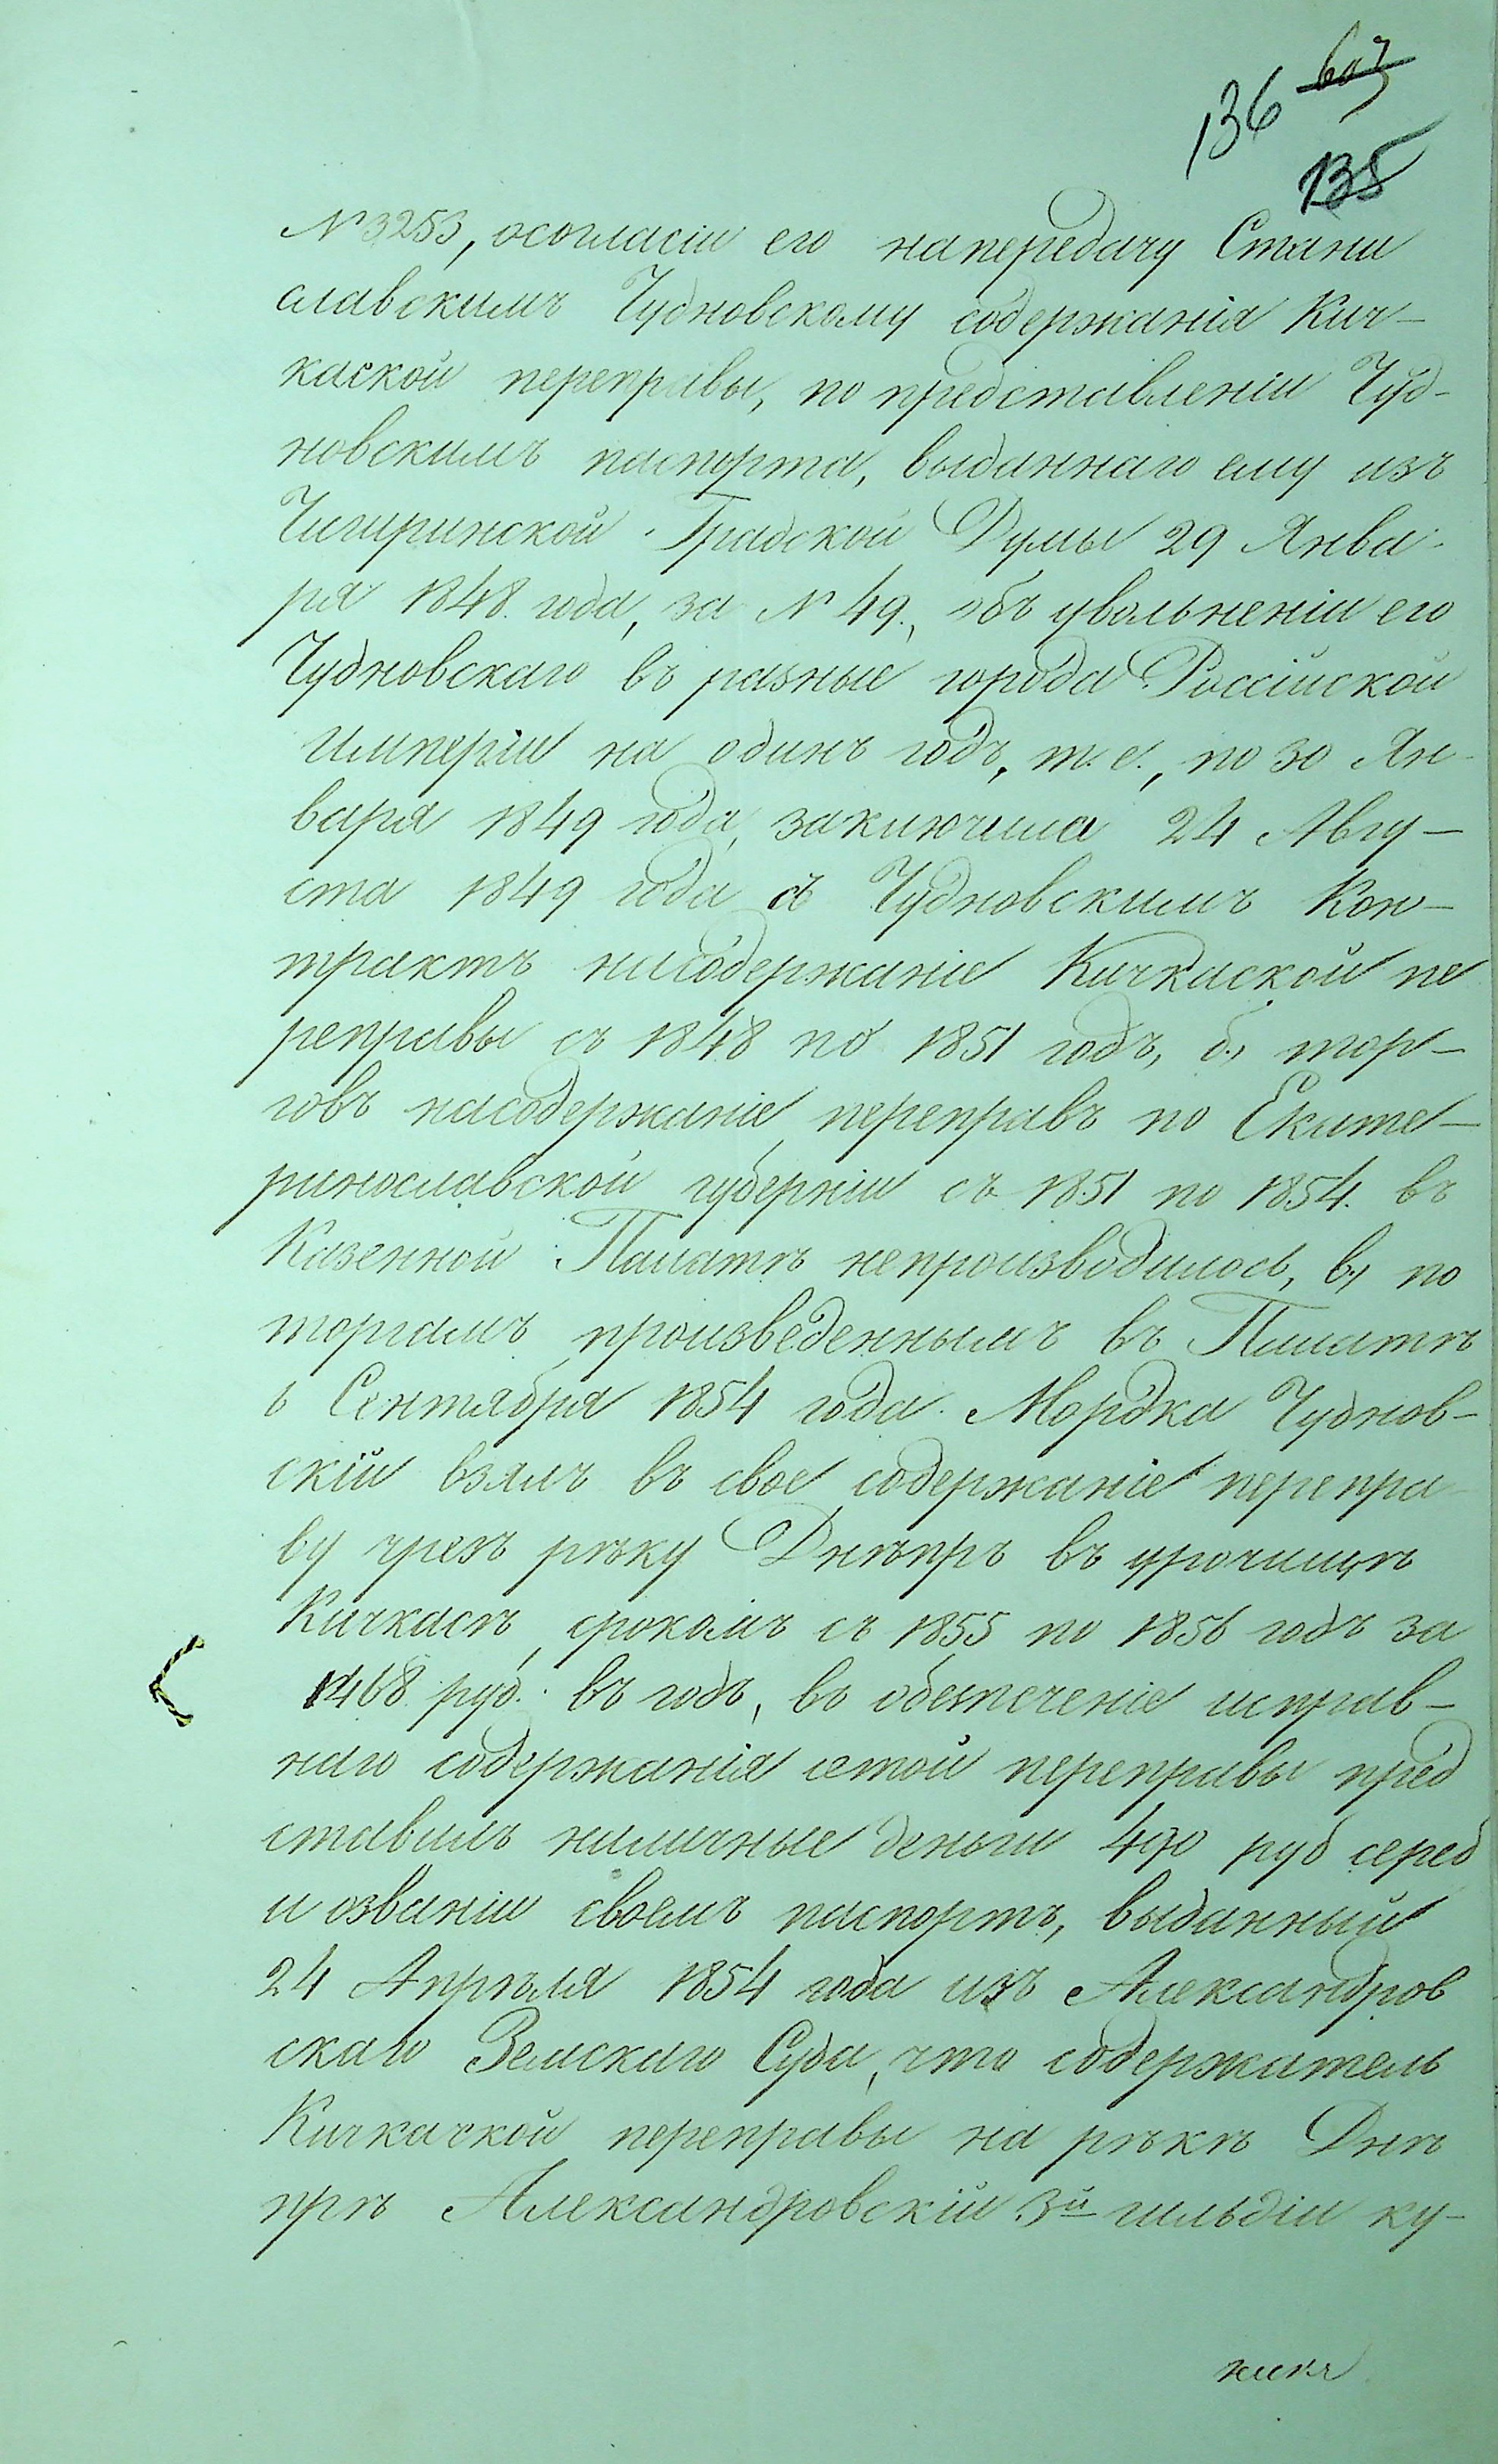 136
135
№ 3253, осогласіи его напередачу Стани
славскимъ Чудновскому содержанія Кич-
каской переправы, по представленіи Чуд-
новскимъ паспорта, выданнаго ему изъ
Чигиринской Градской Думы 29 Янва-
ря 1848 года, за № 49., объ увольненіи его
Чудновскаго въ разные города Россійской
Имперіи на одинъ годъ, т. е., по 30 Ян-
варя 1849 года, заключила 24 Авгу-
ста 1849 года съ Чудновскимъ Кон-
трактъ насодержаніе Кичкаской пе
реправы съ 1848 по 1851 годъ, б., тор-
говъ насодержаніе переправъ по Екате-
ринославской губерніи съ 1851 по 1854. въ
Казенной Палатѣ непроизводилось, в., по
торгамъ произведеннымъ въ Палатѣ
6 Сентября 1854 года Мордка Чуднов-
скій взялъ въ свое содержаніе перепра
ву чрезъ рѣку Днѣпръ въ урочищѣ
Кичкасѣ, срокомъ съ 1855 по 1856 годъ за
1468 руб. въ годъ, въ обезпеченіе исправ-
наго содержанія сетой переправы пред
ставилъ наличные деньги 490 руб сереб
и озваніи своемъ паспортъ, выданный
24 Апрѣля 1854 года изъ Александров
скаго Земскаго Суда, что содержатель
Кичкаской переправы на рѣкѣ Днѣ
прѣ Александровскій 3й гильдіи ку-